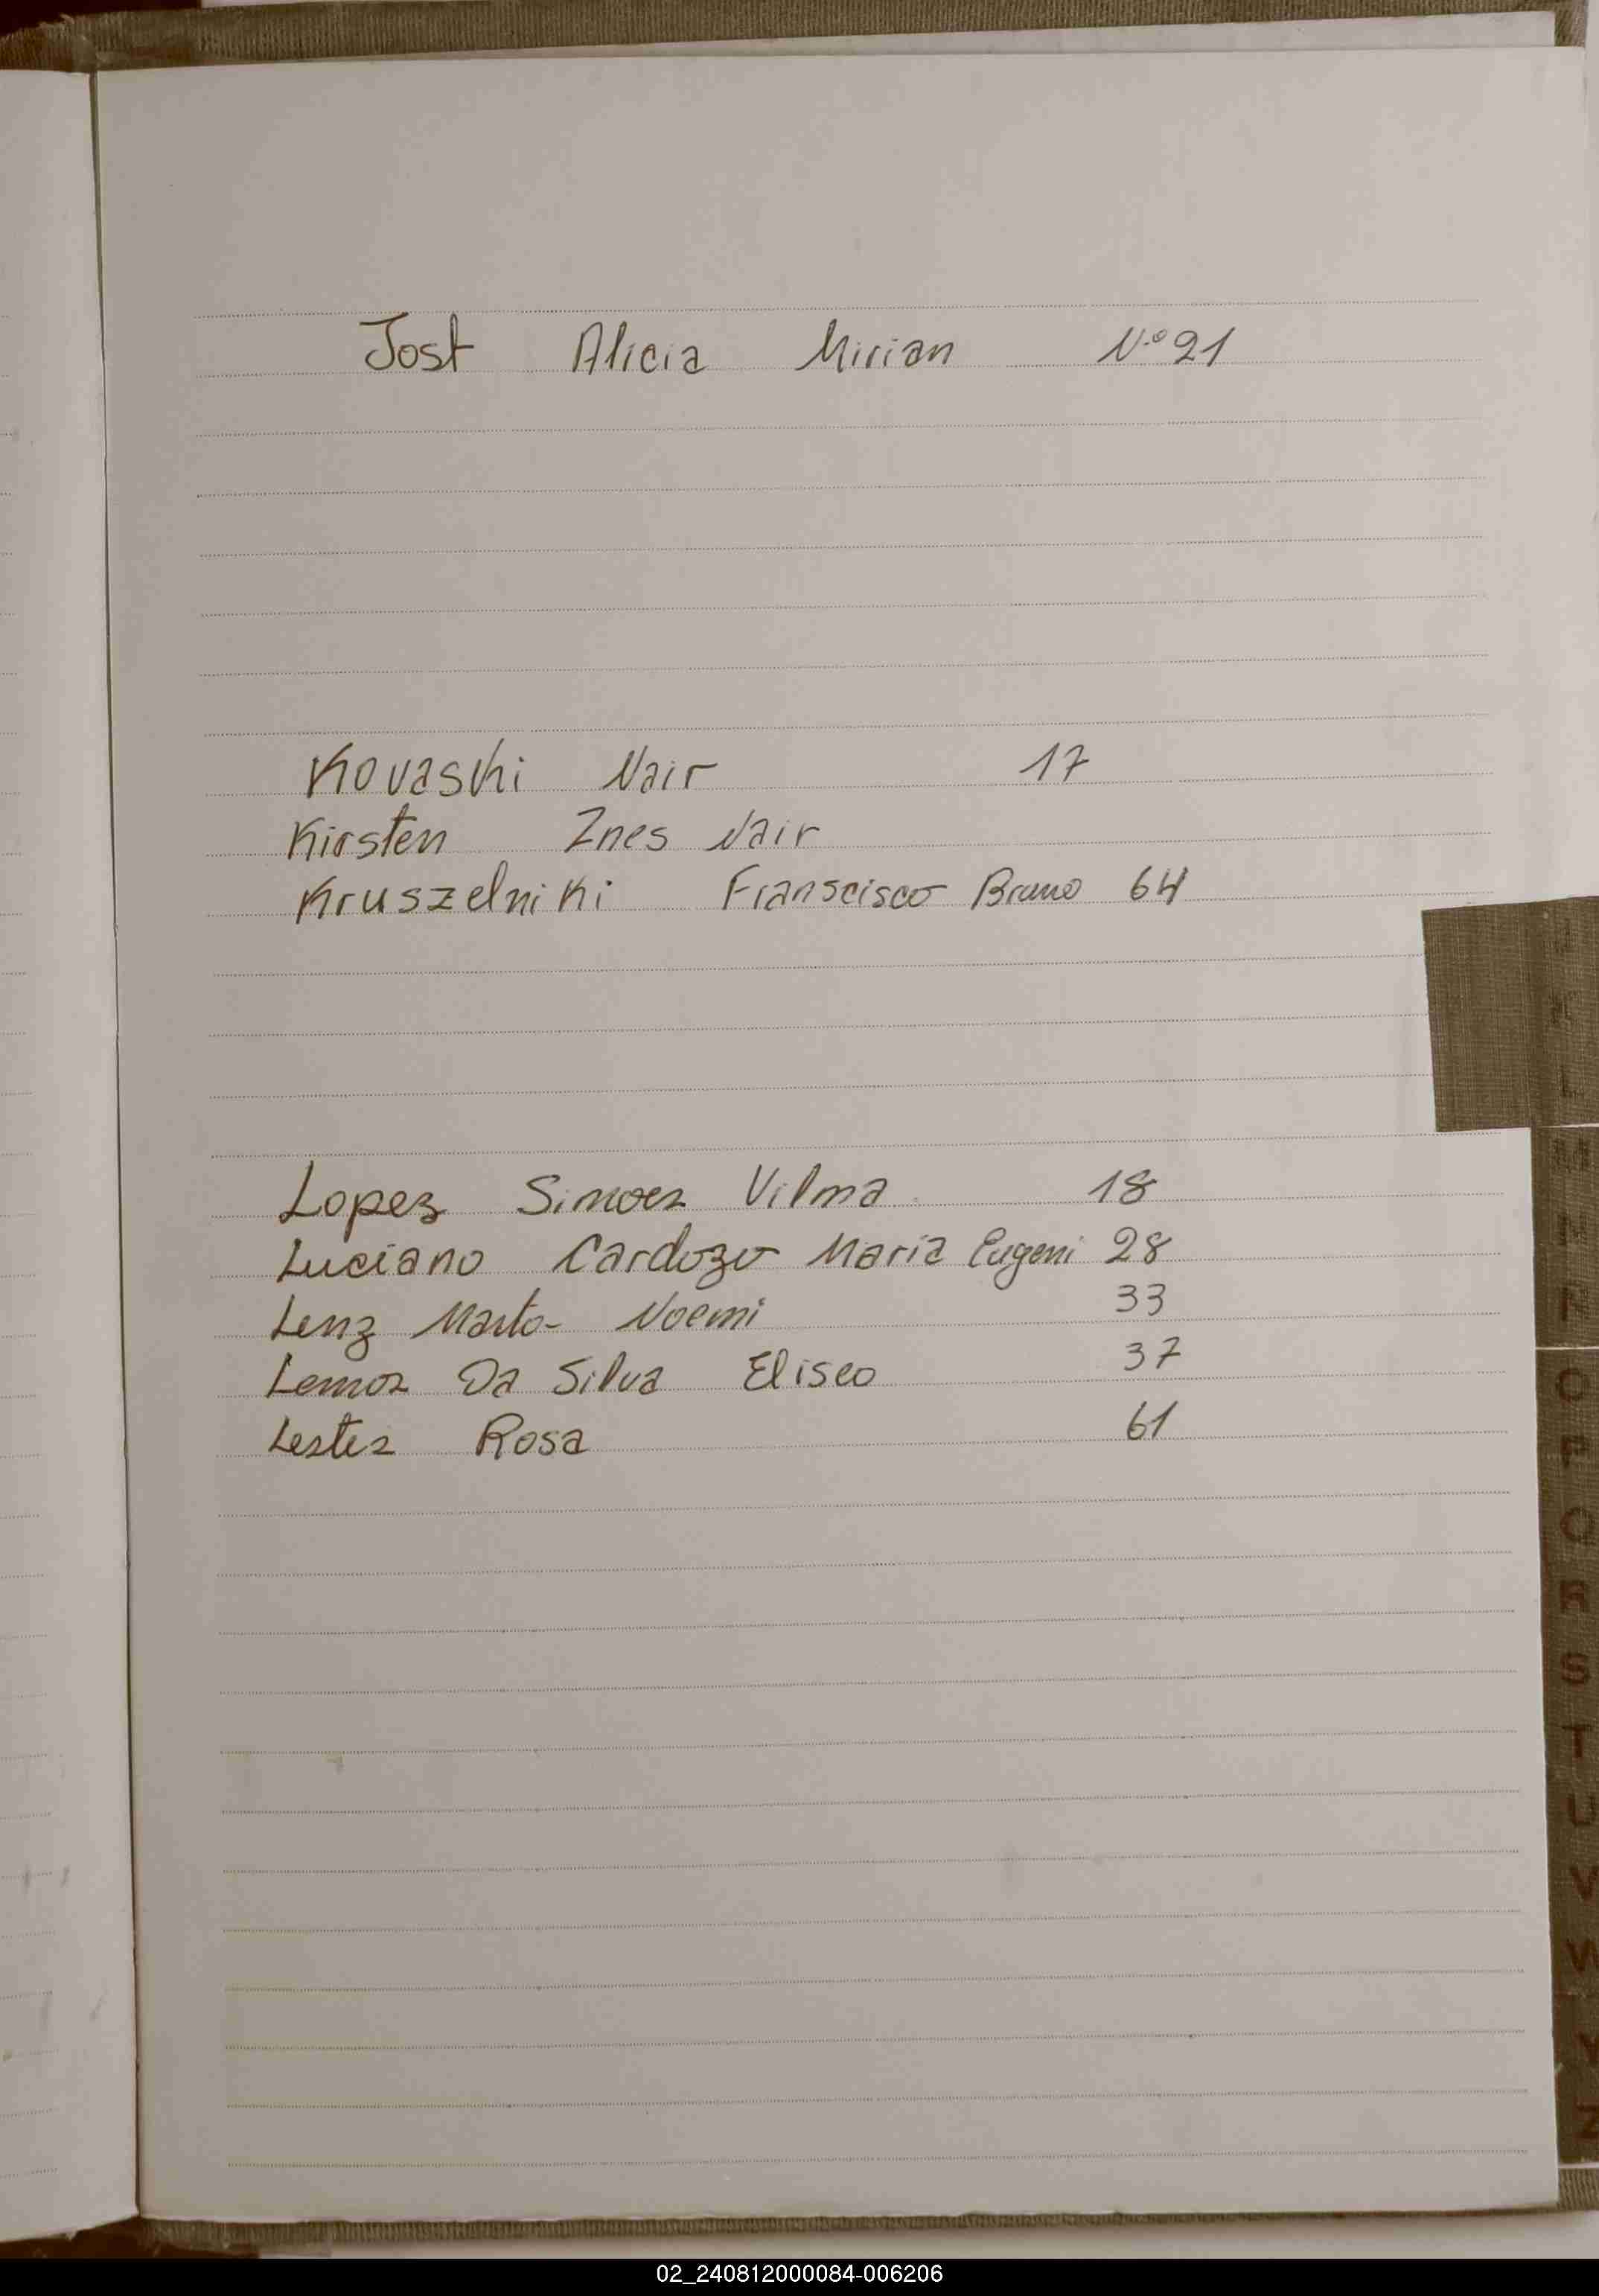 Jost Alicia Mirian N.º 21
Kovaski Nair 17
Kirsten Ines Nair
Kruszelniki Franscisco Bruno 64
Lopez Simoes Vilma 18
Luciano Cardozo Maria Eugeni 28
Lenz Noemi 33
Lemos Da Silva Eliseo 37
Rosa 61
J
K
L
M
N
Ñ
O
P
Q
R
S
T
U
V
W
Y
Z
02_240812000084-006206